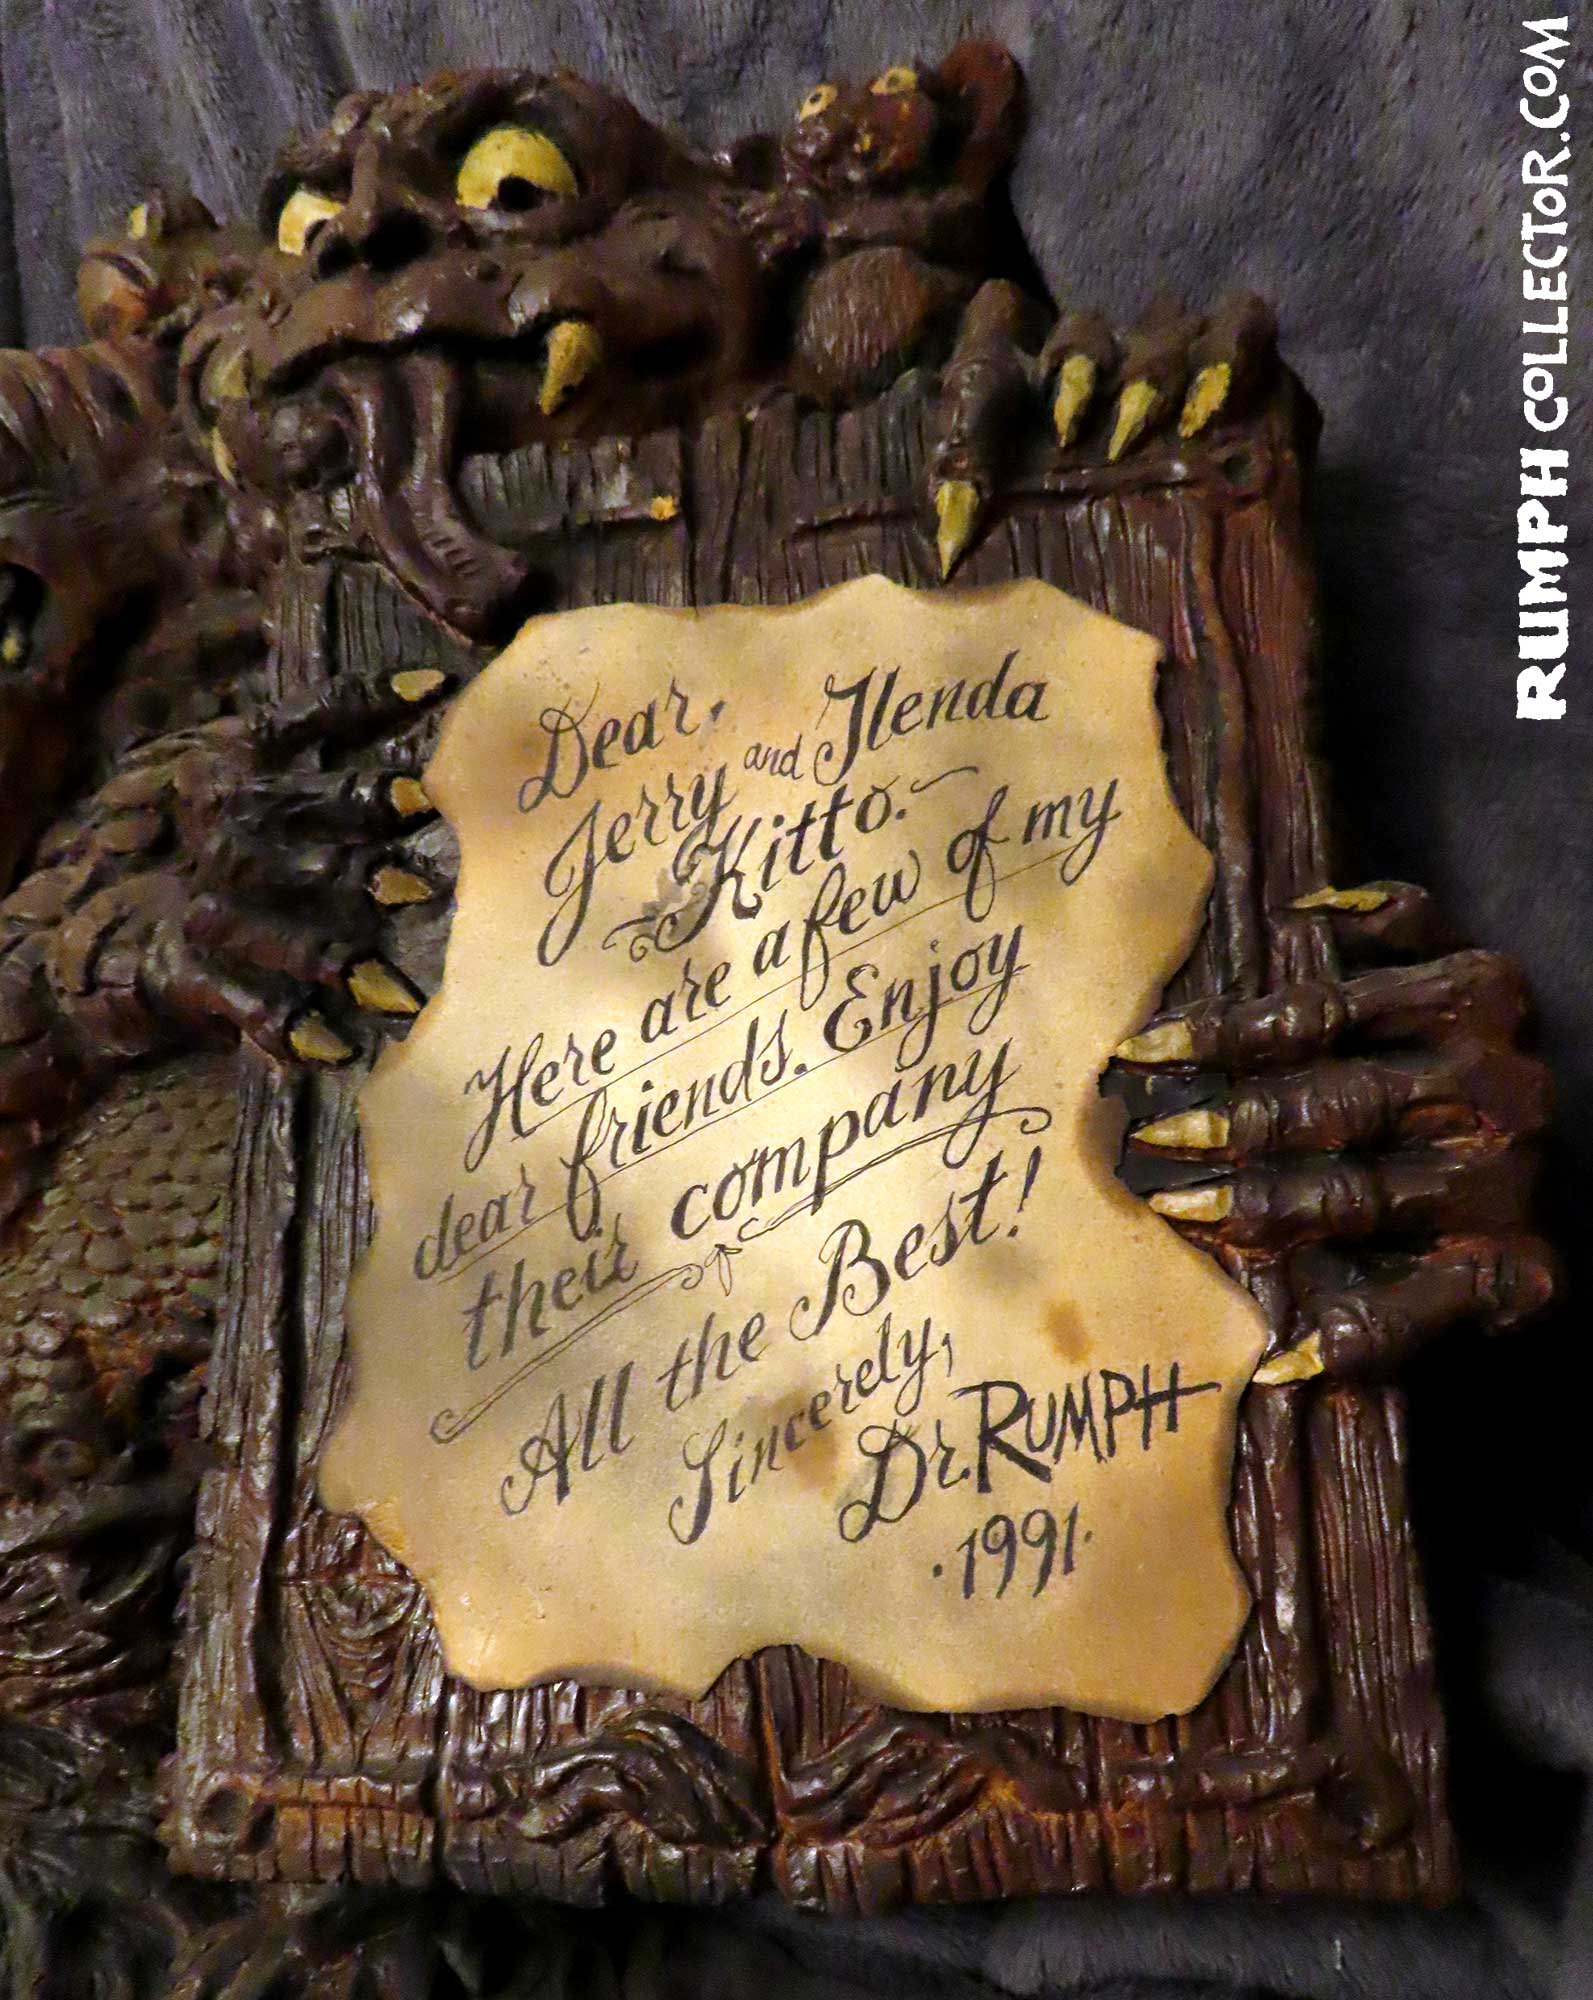 Dear,
Jerry and Ilenda
Kitto.
Here are a few of my
dear friends. Enjoy
their company
All the Best!
Sincerely,
Dr. RUMPH
·1991·
RUMPH COLLECTOR.COM